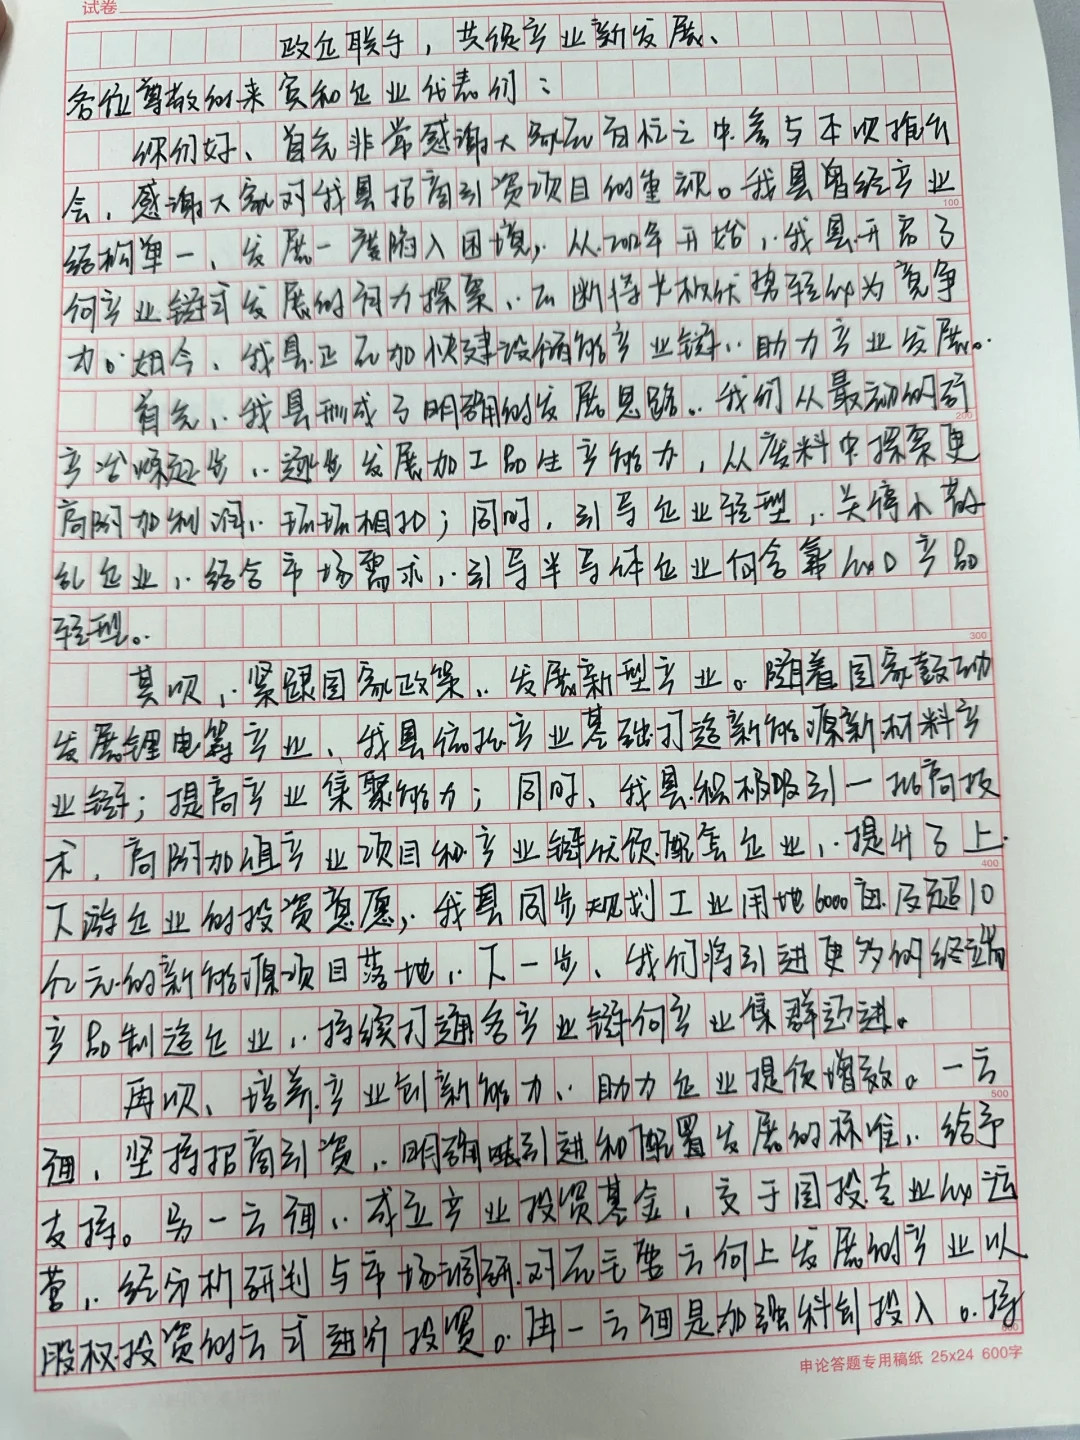 试卷
政企联手，共绘产业新发展、
各位尊敬的来宾和企业代表们：
你们好、首先非常感谢大家在百忙之中参与本次推介
会，感谢大家对我县招商引资项目的重视。我县曾经产业
结构单一、发展一度陷入困境，从2012年开始，我县开启了
向产业链式发展的转力探索，不断将尤权优势转化为竞争
力。如今、我县正在加快建设循能产业链，助力产业发展。
首先，我县形成了明确的发展思路。我们从最初的
产冶炼起步，逐步发展加工品生产能力，从废料中探索更
高附加利润，环环相扣；同时，引导企业转型，关停小散
乱企业，结合市场需求，引导半导体企业向含氟化口产品
转型。
其次，紧跟国家政策，发展新型产业。随着国家鼓动
发展锂电等产业、我县依托产业基础打造新能源新材料产
业链；提高产业集聚能力；同时、我县积极吸引一批高技
术，高附加值产业项目和产业链优质配套企业，提升了上
下游企业的投资意愿，我县同步规划工业用地6000亩及超10
亿元的新能源项目落地，下一步、我们将引进更多的终端
产品制造企业，持续打通各产业链向产业集群迈进。
再次、培养产业创新能力，助力企业提质增效。一方
面，坚持招商引资，明确引进和配置发展的标准，给予
支持。另一方面，成立产业投资基金，交于国投专业化运
营，经分析研判与市场调研对在主要方向上发展的产业以
股权投资的方式进行投资。再一方面是加强科创投入。持
100
200
300
400
500
600
申论答题专用稿纸 25x24 600字